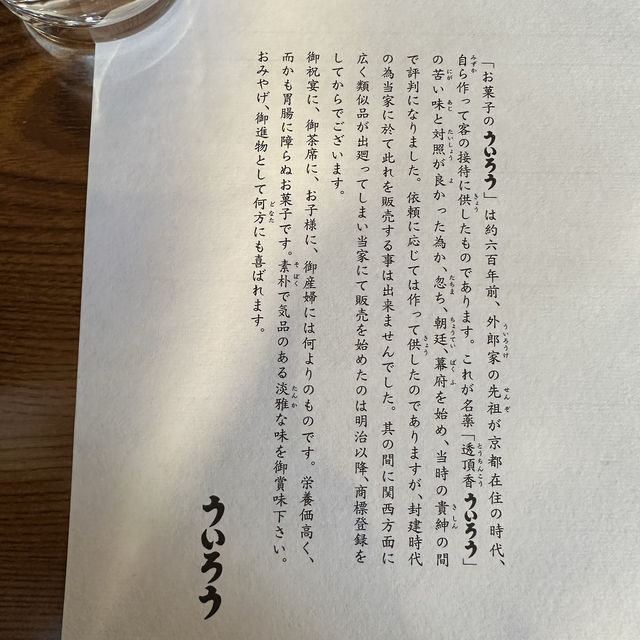 「お菓子のういろう」は約六百年前、外郎家の先祖が京都在住の時代、
自ら作って客の接待に供したものであります。これが名薬「透頂香ういろう」
の苦い味と対照が良かった為か、忽ち、朝廷、幕府を始め、当時の貴紳の間
で評判になりました。依頼に応じては作って供したのでありますが、封建時代
の為当家に於て此れを販売する事は出来ませんでした。其の間に関西方面に
広く類似品が出廻ってしまい当家にて販売を始めたのは明治以降、商標登録を
してからでございます。
御祝宴に、御茶席に、お子様に、御産婦には何よりのものです。栄養価高く、
而かも胃腸に障らぬお菓子です。素朴で気品のある淡雅な味を御賞味下さい。
おみやげ、御進物として何方にも喜ばれます。
ういろう